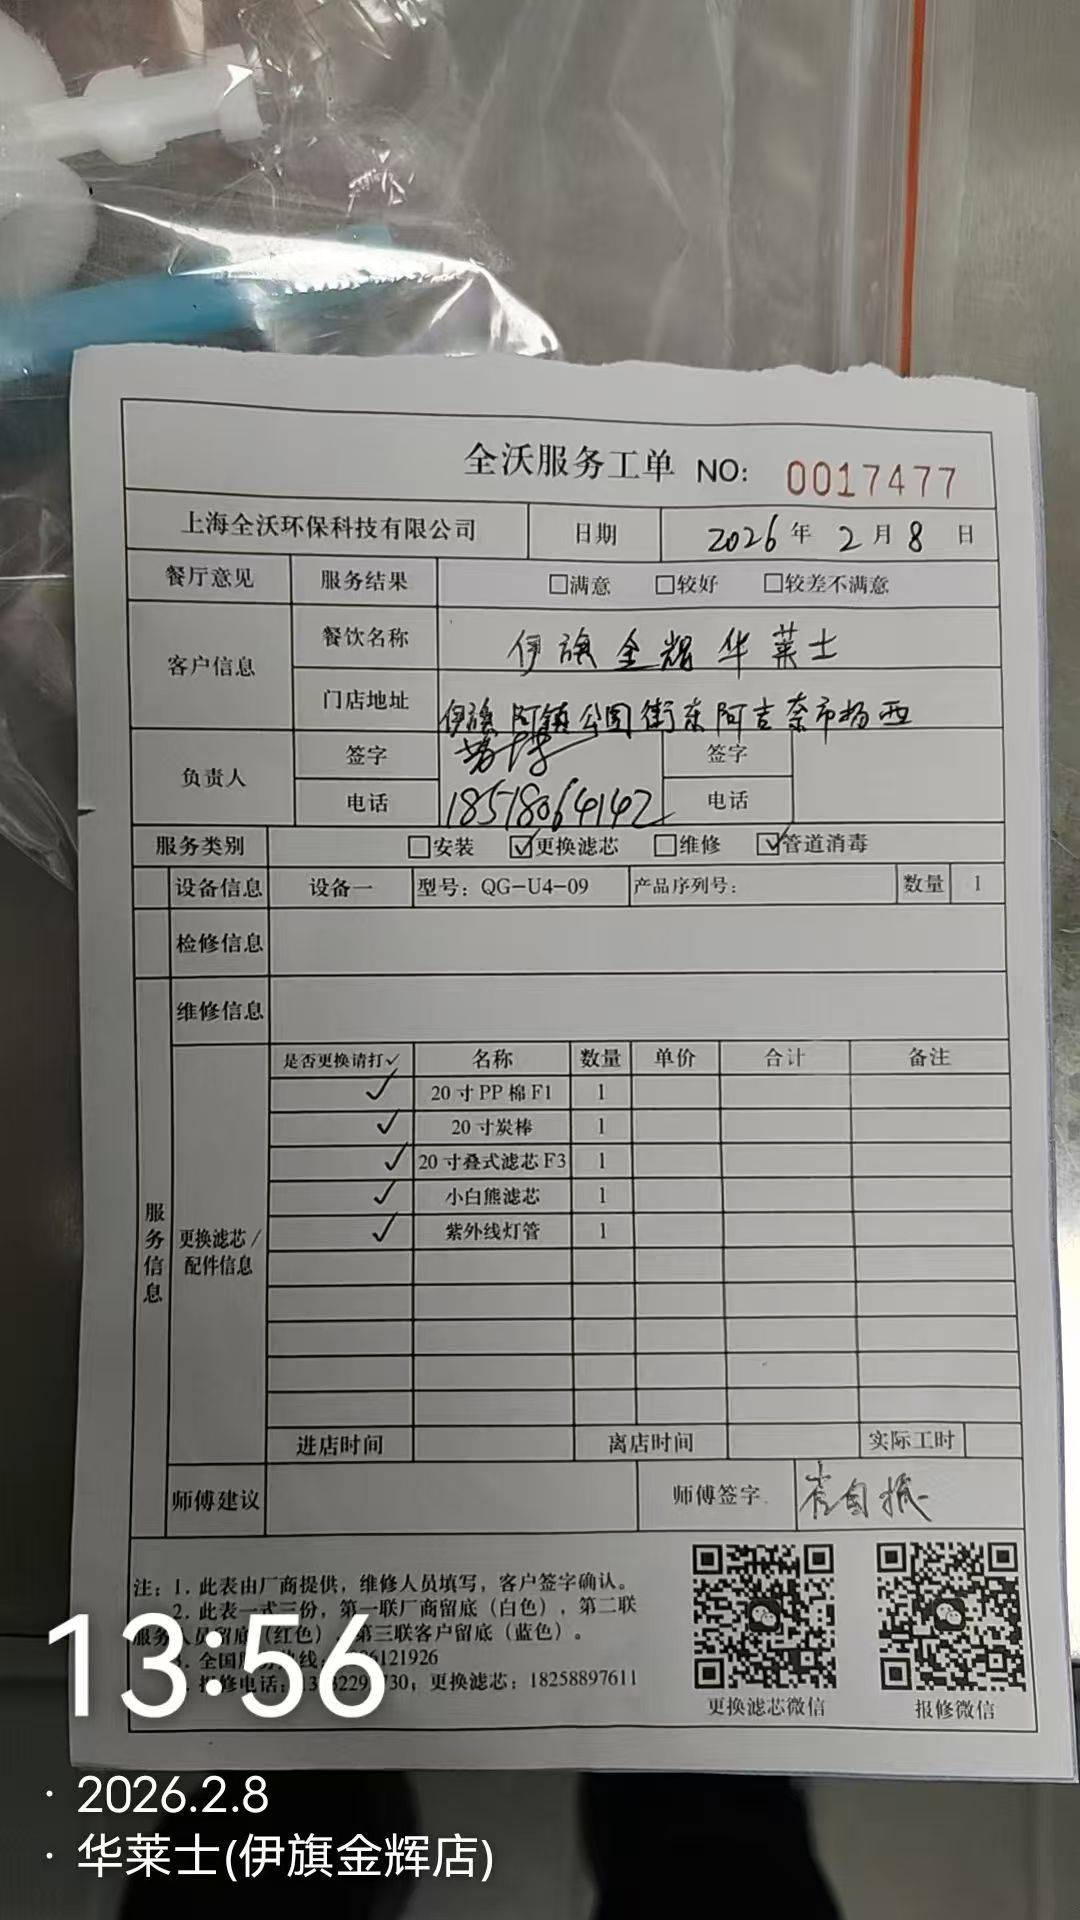 全沃服务工单 NO: 0017477
上海全沃环保科技有限公司 日期 2026年 2月 8日
餐厅意见 服务结果 □满意 □较好 □较差不满意
客户信息 餐饮名称 伊旗金辉华莱士
门店地址 伊旗阿镇公园街东阿吉奈市场西
负责人 签字 签字
电话 18518064142 电话
服务类别 □安装 ☑更换滤芯 □维修 ☑管道消毒
设备信息 设备一 型号: QG-U4-09 产品序列号: 数量 1
检修信息
维修信息
服务信息
更换滤芯/配件信息
是否更换请打✓ 名称 数量 单价 合计 备注
✓ 20寸PP棉F1 1
✓ 20寸炭棒 1
✓ 20寸叠式滤芯F3 1
✓ 小白熊滤芯 1
✓ 紫外线灯管 1
进店时间 离店时间 实际工时
师傅建议 师傅签字
注: 1. 此表由厂商提供，维修人员填写，客户签字确认。
2. 此表一式三份，第一联厂商留底（白色），第二联
服务人员留底（红色），第三联客户留底（蓝色）。
全国服务热线: 6121926
报修电话: 730，更换滤芯: 18258897611
更换滤芯微信 报修微信
13:56
· 2026.2.8
· 华莱士(伊旗金辉店)